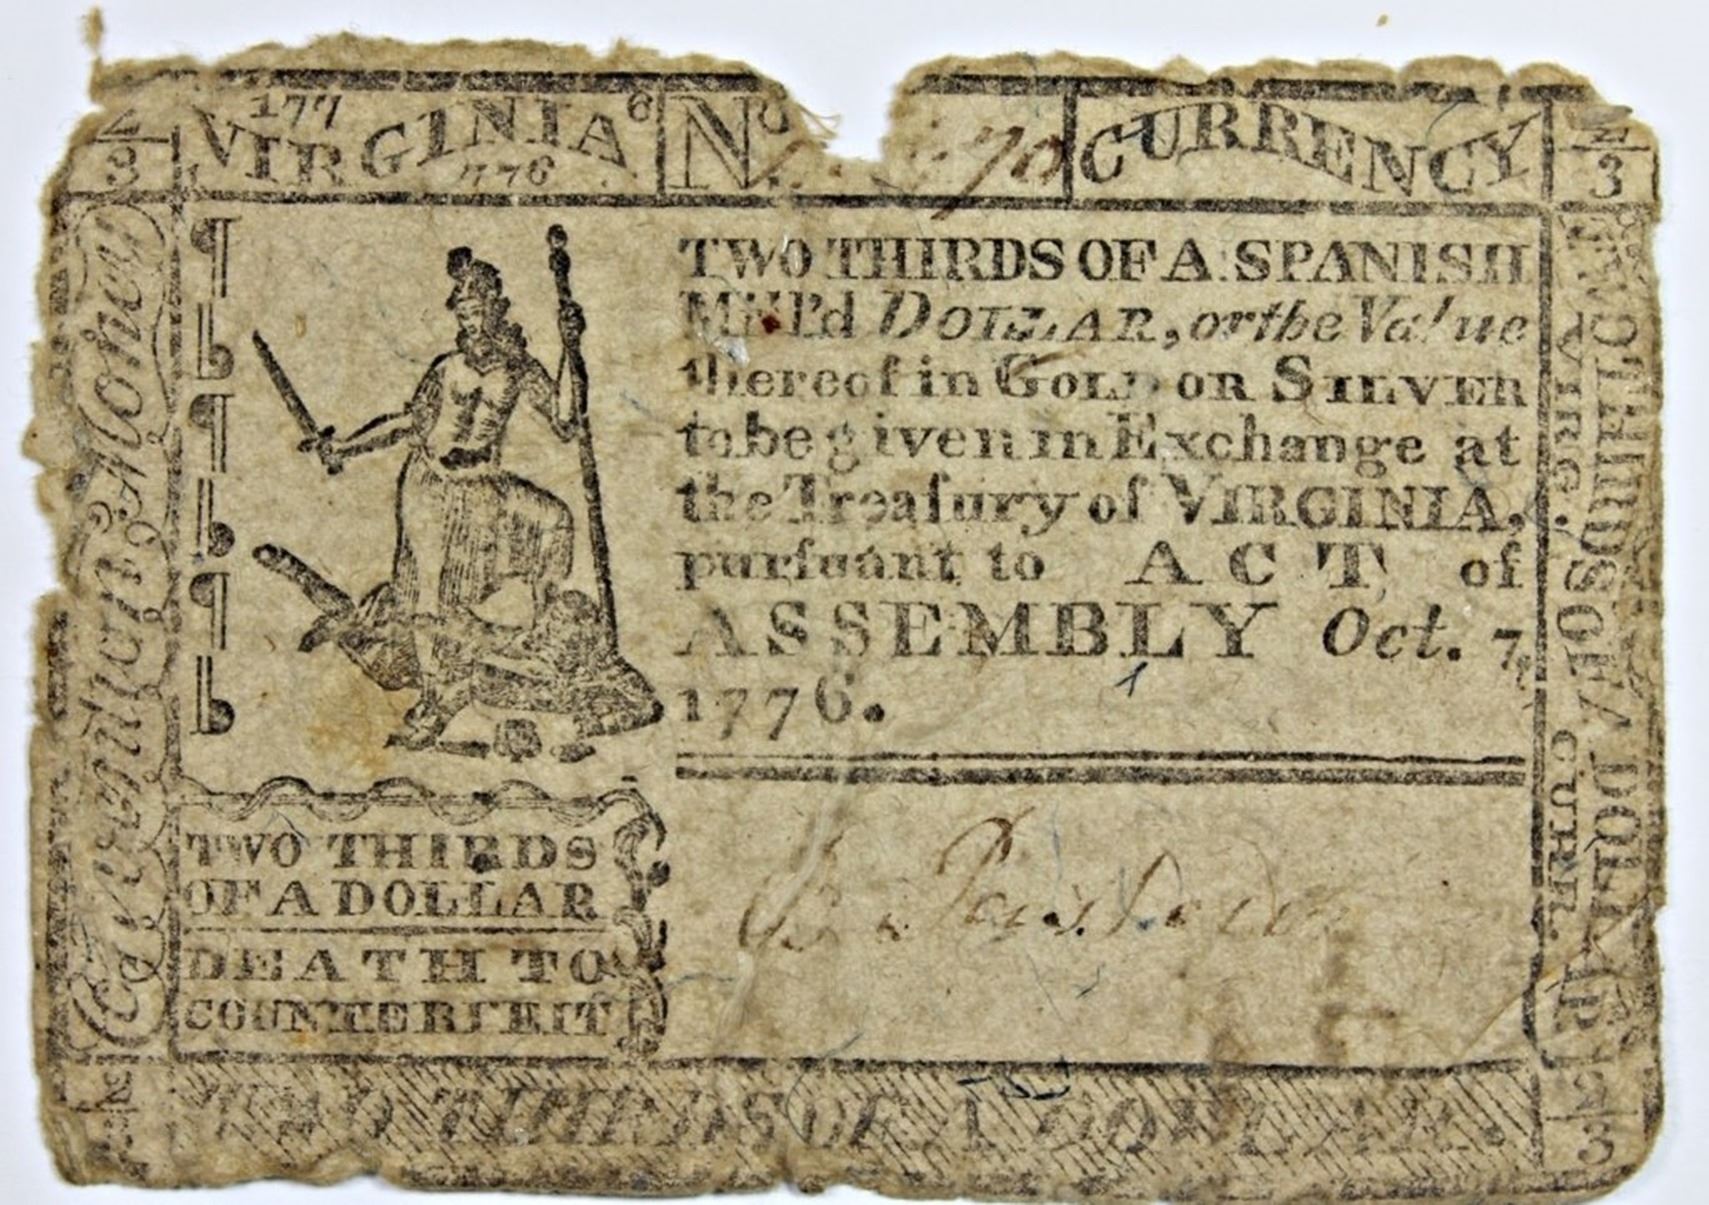 2/3
1776
VIRGINIA
1776
No
70
CURRENCY
2/3
TWO THIRDS OF A SPANISH
Mill'd DOLLAR, or the Value
thereof in GOLD OR SILVER
to be given in Exchange at
the Treaſury of VIRGINIA,
purſuant to ACT of
ASSEMBLY Oct. 7,
1776.
TWO THIRDS
OF A DOLLAR
DEATH TO
COUNTERFEIT
TWO THIRDS OF A DOLLAR.
Money
TWO THIRDS OF A DOLLAR
VIRG. CURR.
2/3
2/3